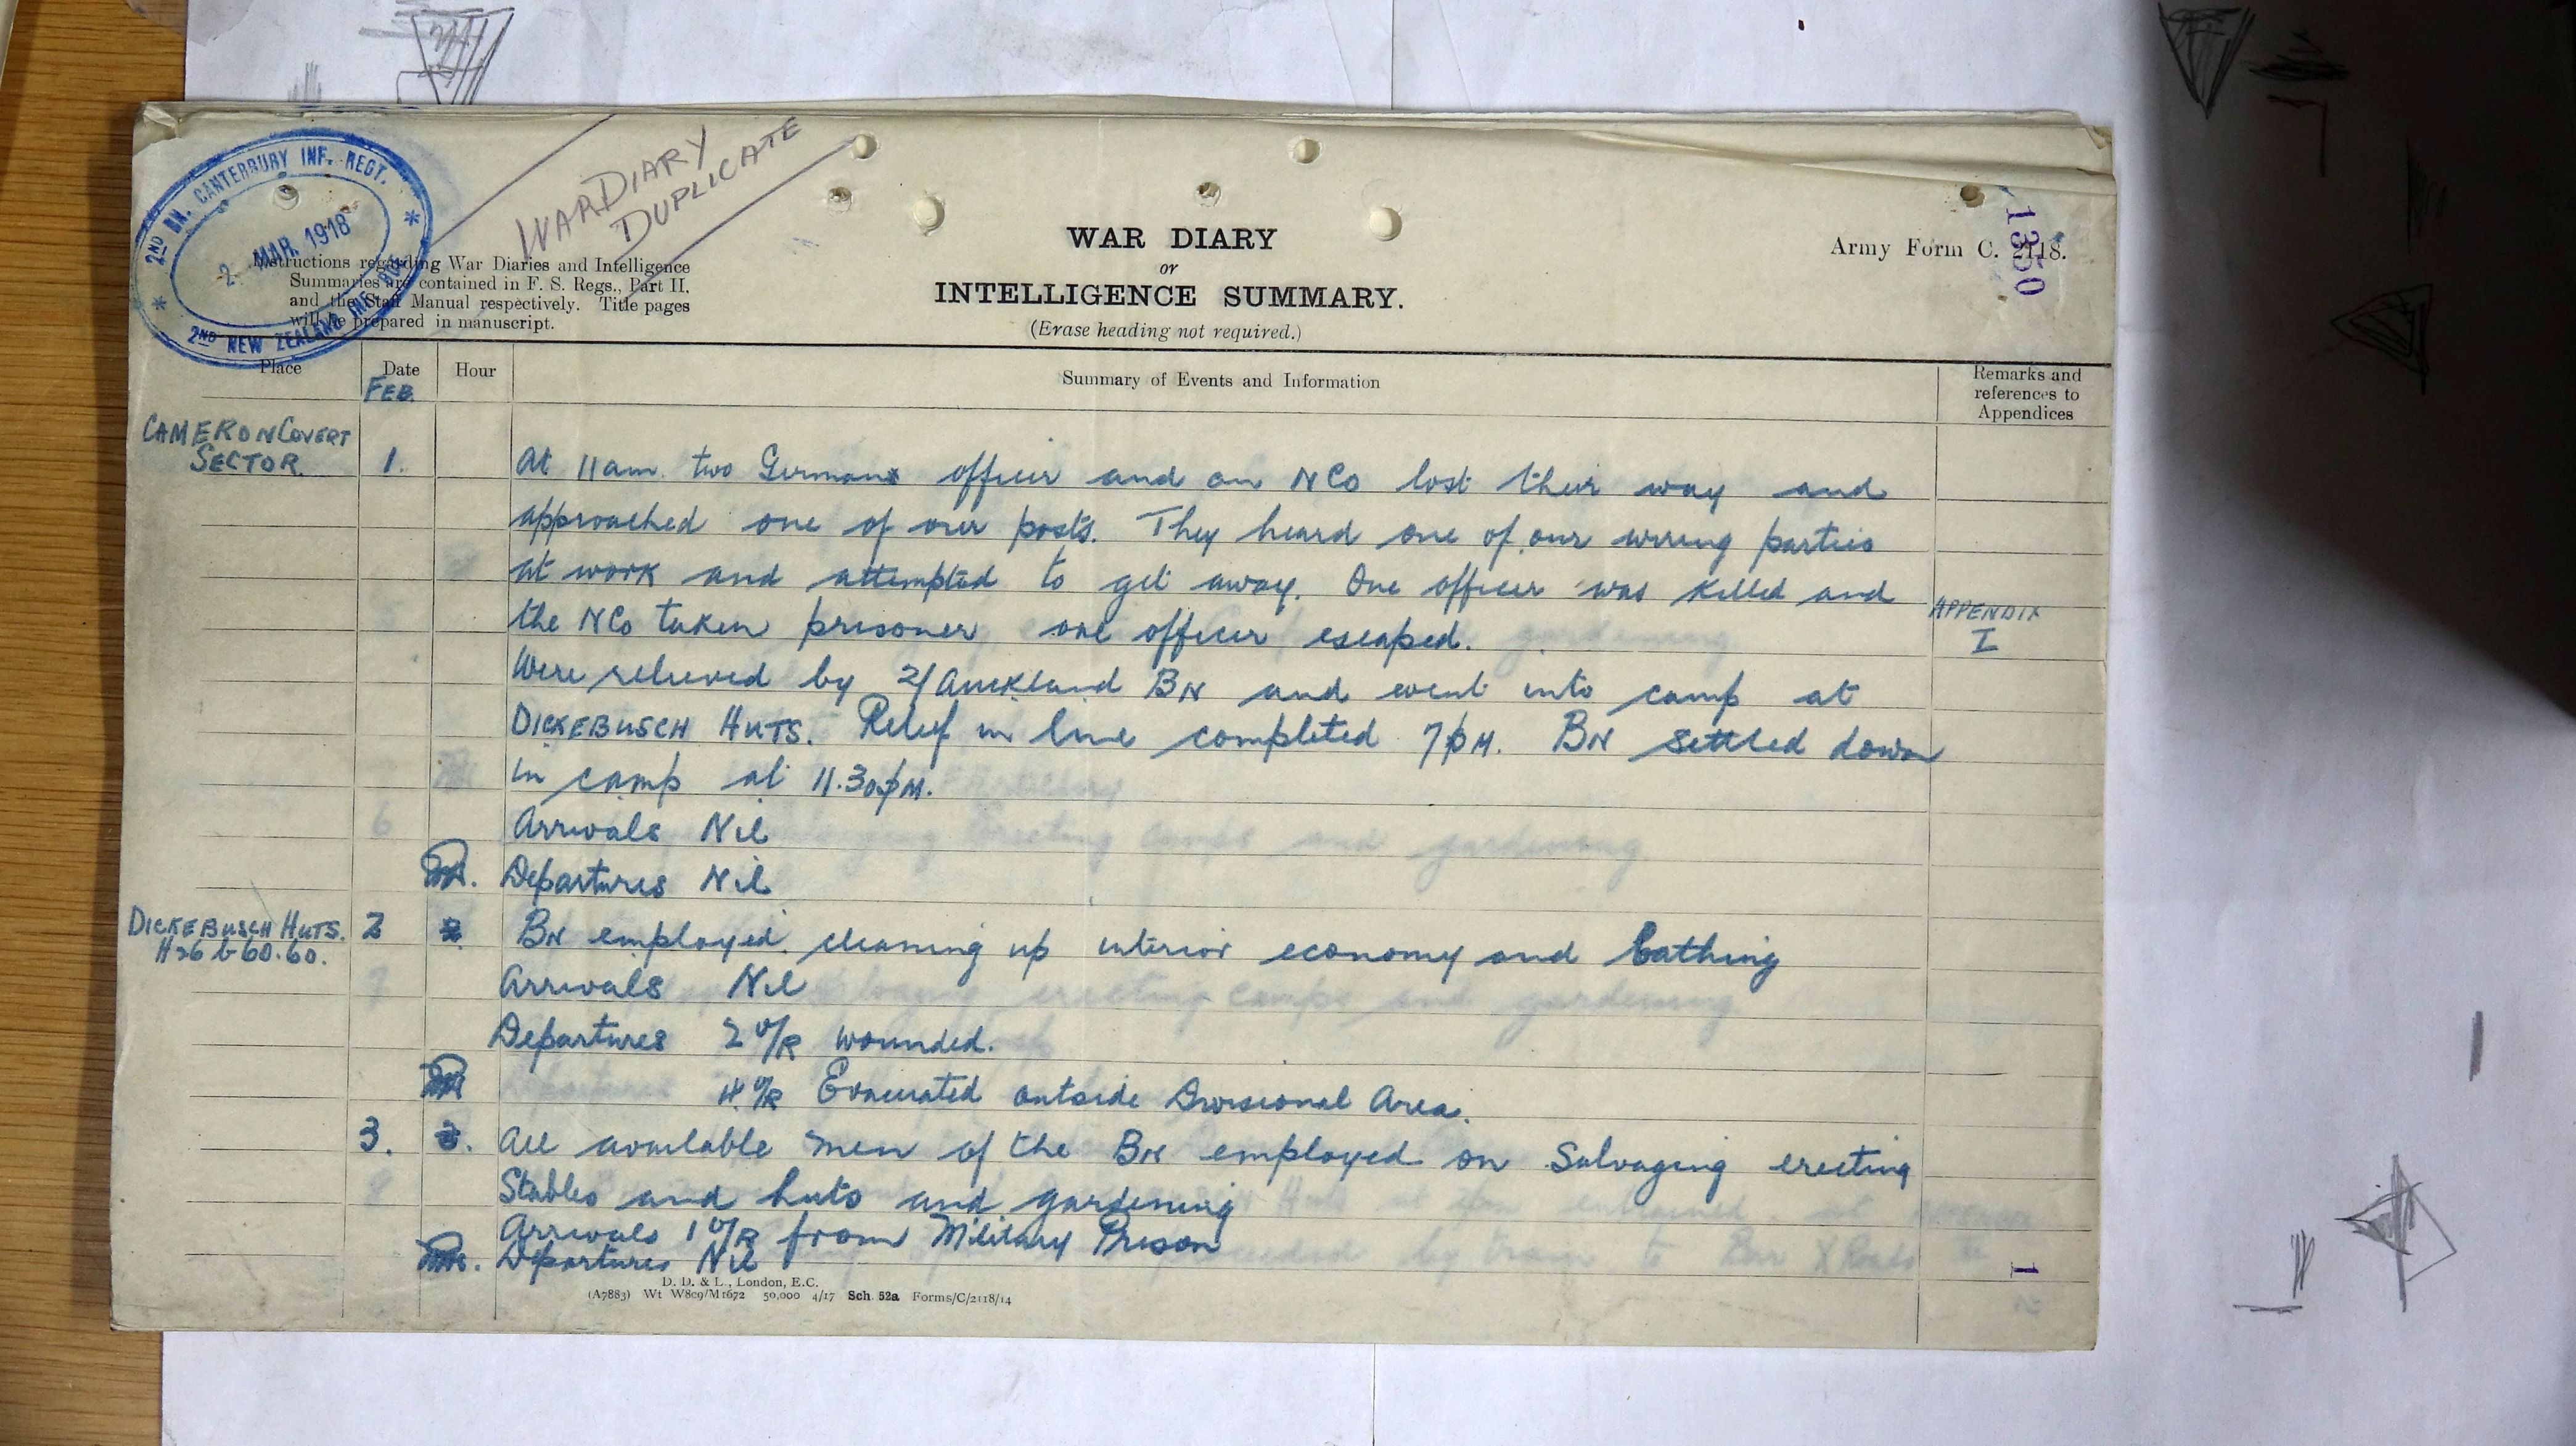 2ND BN. CANTERBURY INF. REGT.
2 MAR. 1918
2ND NEW ZEALAND INF. BDE.
WAR DIARY
DUPLICATE
Instructions regarding War Diaries and Intelligence
Summaries are contained in F. S. Regs., Part II.
and the Staff Manual respectively. Title pages
will be prepared in manuscript.
WAR DIARY
or
INTELLIGENCE SUMMARY.
(Erase heading not required.)
Army Form C. 2118.
1350
Place Date Hour Summary of Events and Information Remarks and references to Appendices
FEB.
CAMERON COVERT
SECTOR. 1. At 11am. two German officer and an NCo lost their way and
approached one of our posts. They heard one of our wiring parties
at work and attempted to get away. One officer was killed and
the NCo taken prisoner one officer escaped. APPENDIX I
Were relieved by 2/Auckland BN and went into camp at
DICKEBUSCH HUTS. Relief in line completed 7pM. BN settled down
in camp at 11.30pM.
Arrivals Nil
Departures Nil
DICKEBUSCH HUTS. 2 BN employed cleaning up interior economy and bathing
H26 b 60.60.
Arrivals Nil
Departures 2 O/R wounded.
4 O/R Evacuated outside Divisional Area.
3. All available men of the BN employed on Salvaging erecting
Stables and huts and gardening
Arrivals 1 O/R from Military Prison
Departures Nil
1
D. D. & L., London, E.C.
(A7883) Wt W809/M1672 50,000 4/17 Sch. 52a Forms/C/2118/14